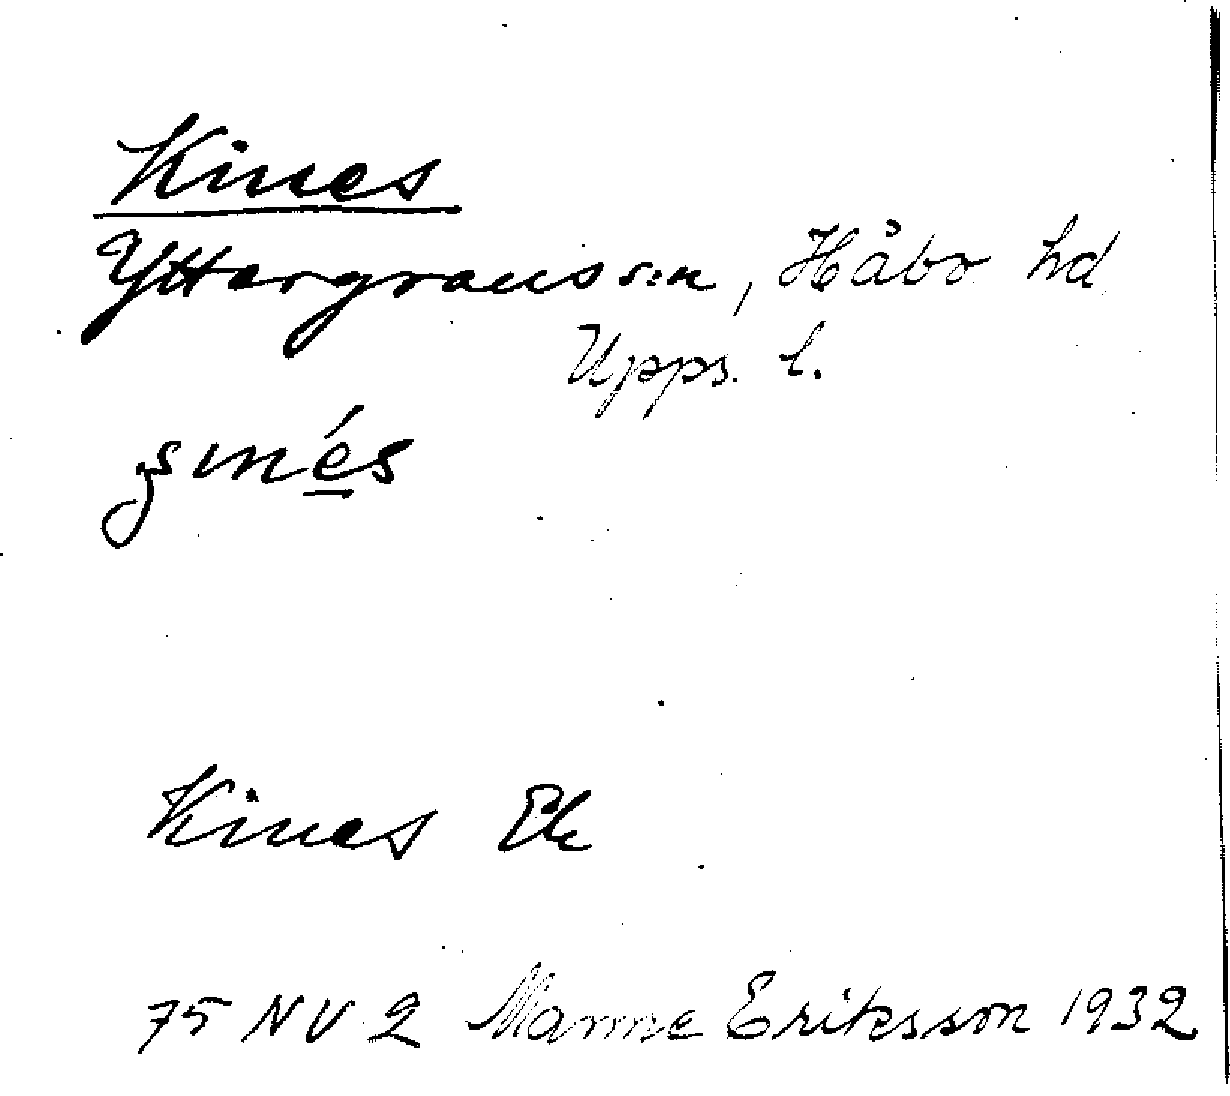 Kines
Yttergrans sn, Håbo hd
Upps. l.
Kines Ek
75 NV 2 Manne Eriksson 1932